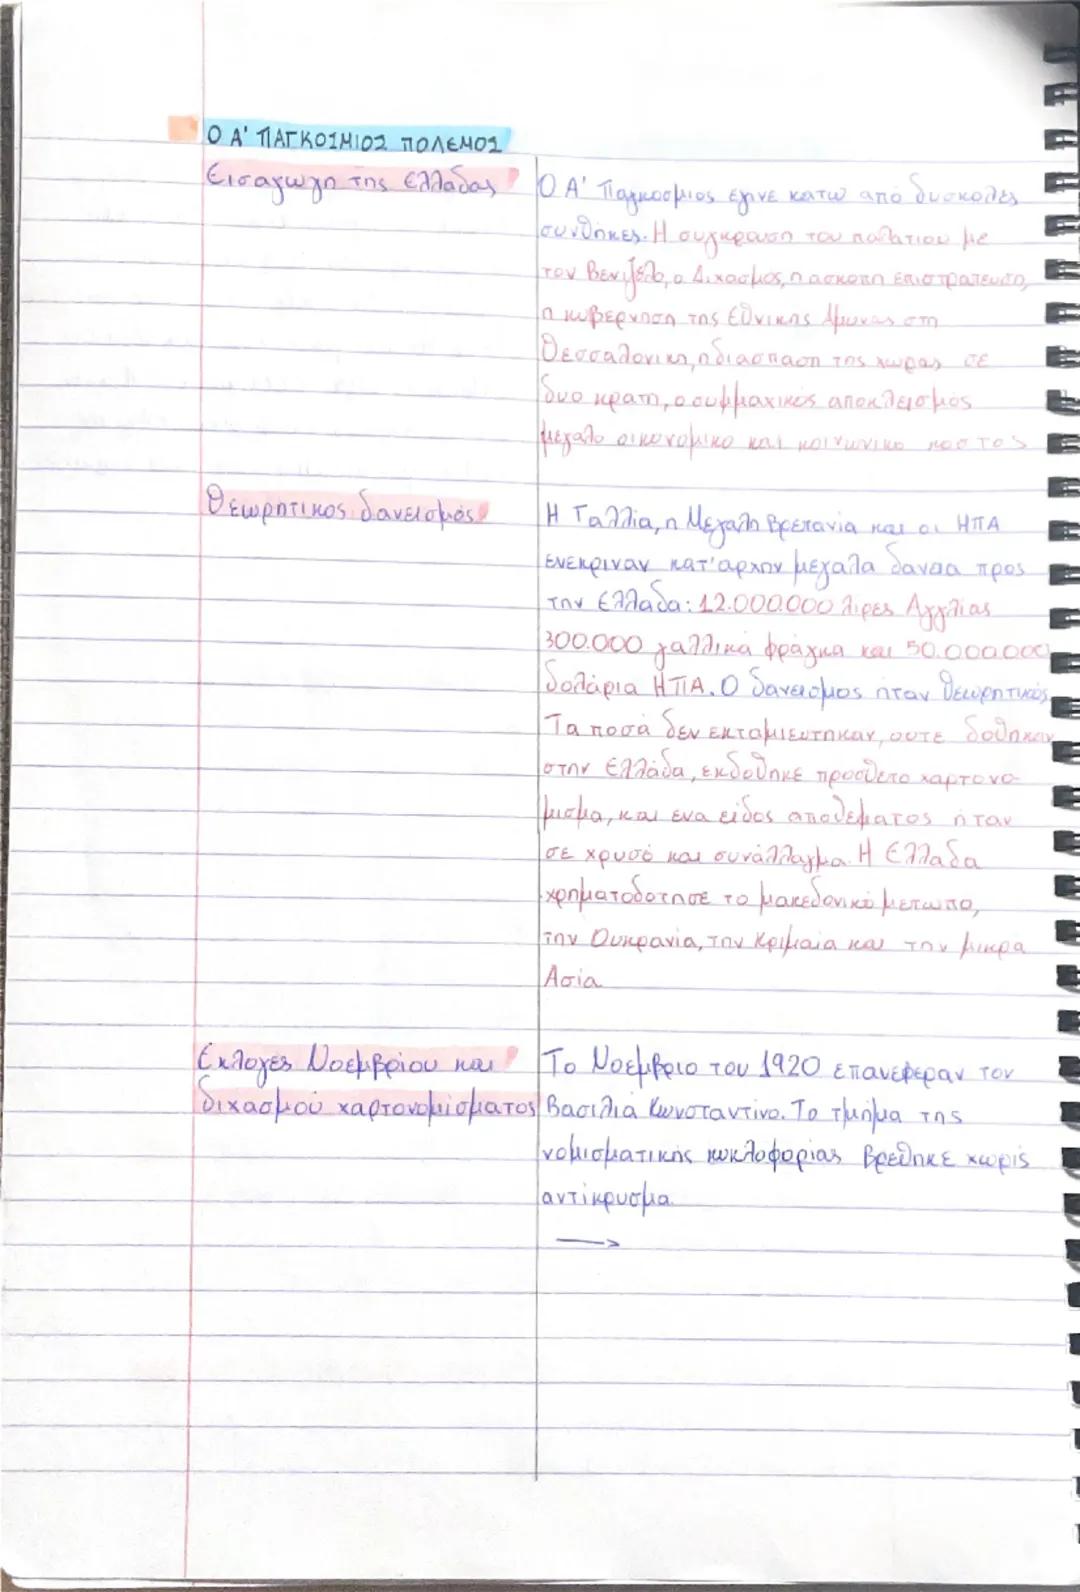 Ο Α' ΠΑΓΚΟΣΜΙΟΣ ΠΟΛΕΜΟΣ
Εισαγωγη της Ελλαδας
Ο Α' Παγκοσμιος εγινε κατω από δυσκολες
συνθηκες. Η συγκρουση του παλατιου με
τον Βενιζελο, ο Διχασμος, η ασκοπη επιστρατευση,
η κυβερνηση της Εθνικης Αμυνας στη
Θεσσαλονικη, η διασπαση της χωρας σε
δυο κρατη, ο συμμαχικος αποκλεισμος
μεγαλο οικονομικο και κοινωνικο κοστος
Θεωρητικος δανεισμος
Η Γαλλια, η Μεγαλη Βρετανια και οι ΗΠΑ
ενεκριναν κατ'αρχην μεγαλα δανεια προς
την Ελλαδα: 12.000.000 λιρες Αγγλιας
300.000 γαλλικά φράγκα και 50.000.000
δολάρια ΗΠΑ. Ο δανεισμος ηταν θεωρητικός.
Τα ποσά δεν εκταμιευτηκαν, ουτε δοθηκαν
στην Ελλάδα, εκδοθηκε προσθετο χαρτονο-
μισμα, και ενα είδος αποθεματος ηταν
σε χρυσό και συνάλλαγμα. Η Ελλαδα
χρηματοδοτησε το μακεδονικό μετωπο,
την Ουκρανια, την Κριμαια και την μικρα
Ασία
Εκλογες Νοεμβρίου και
διχασμού χαρτονομίσματος
Το Νοεμβριο του 1920 επανεφεραν τον
Βασιλιά Κωνσταντίνο. Το τμήμα της
νομισματικής κυκλοφορίας βρεθηκε χωρίς
αντίκρυσμα.
→